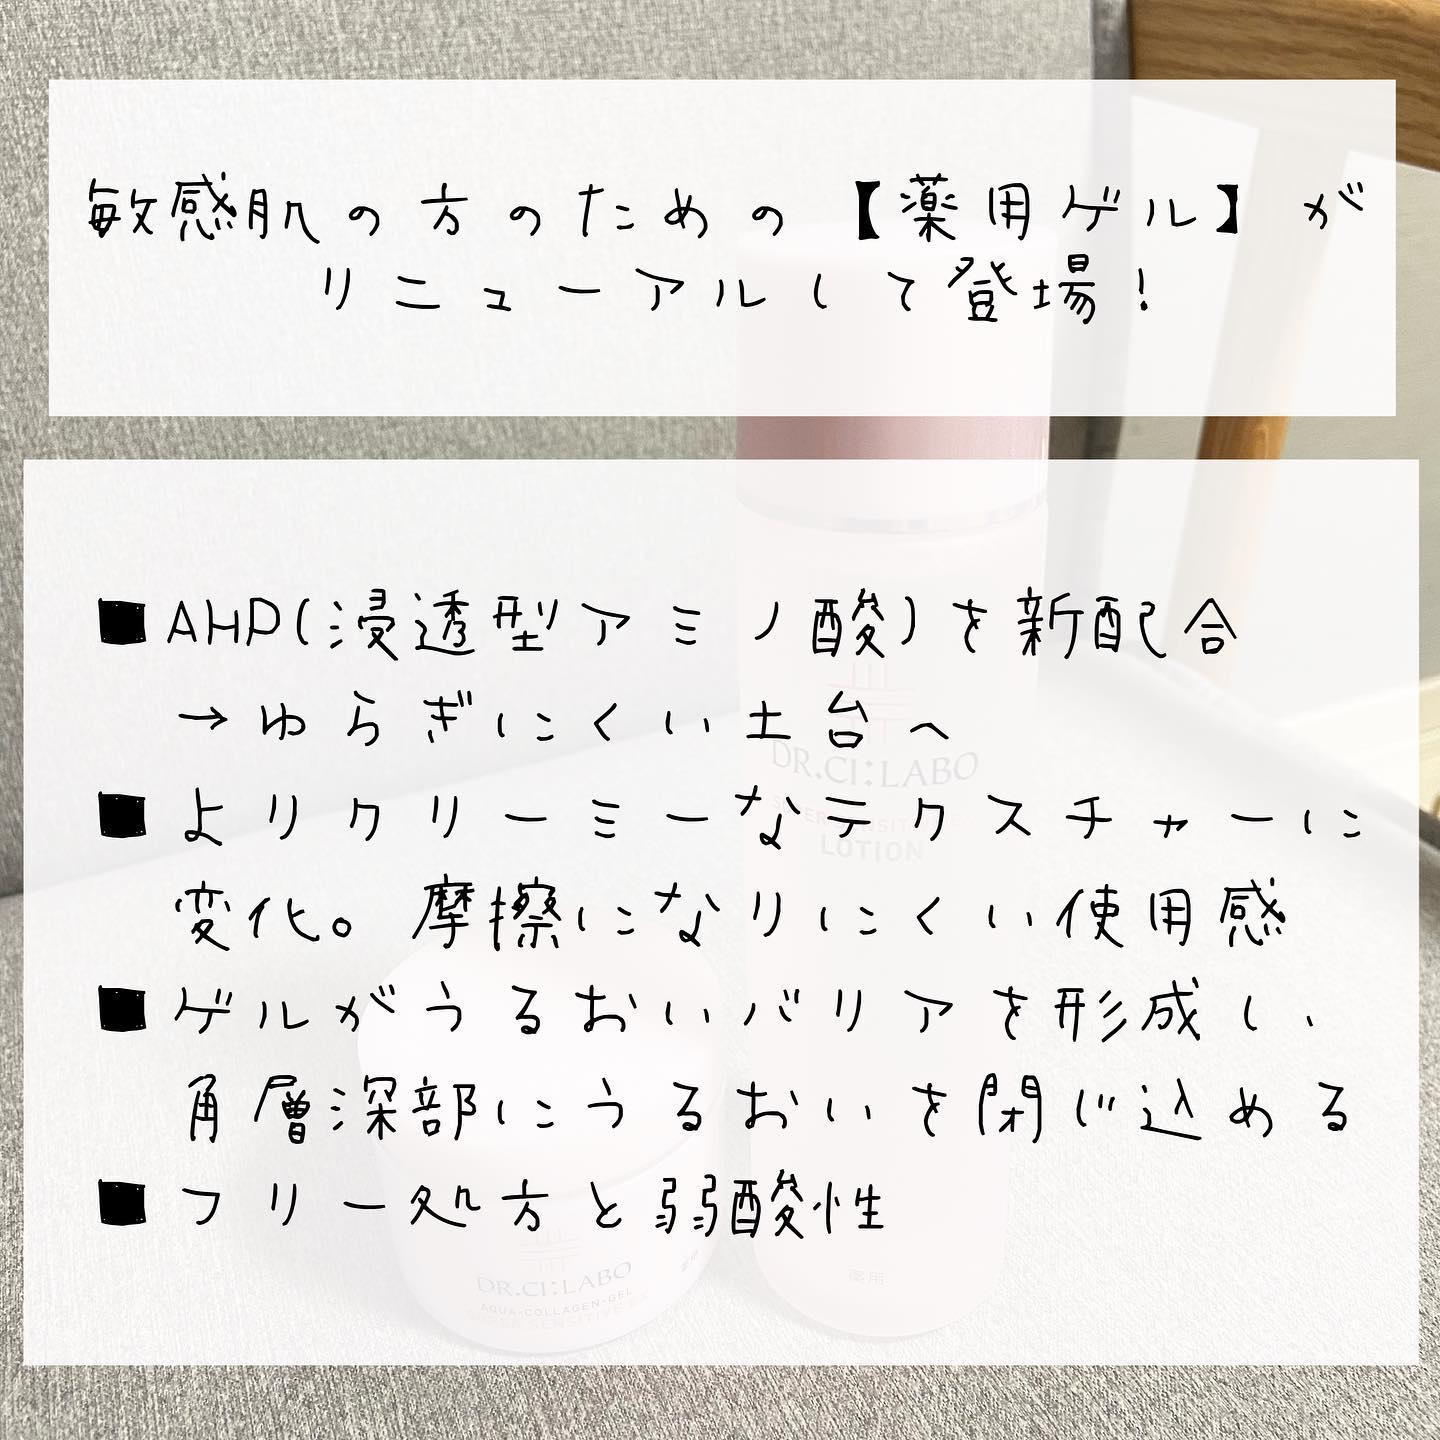 敏感肌の方のための【薬用ゲル】が
リニューアルして登場！
■AHP(浸透型アミノ酸)を新配合
→ゆらぎにくい土台へ
■よりクリーミーなテクスチャーに
変化。摩擦になりにくい使用感
■ゲルがうるおいバリアを形成し、
角層深部にうるおいを閉じ込める
■フリー処方と弱酸性
DR.CI:LABO
LOTION
薬用
DR.CI:LABO
AQUA-COLLAGEN-GEL